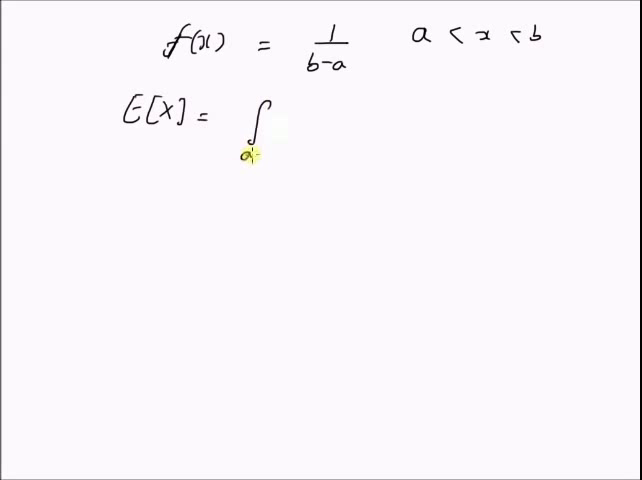 f(x) = 1/(b-a) a < x < b
E[X] = ∫a